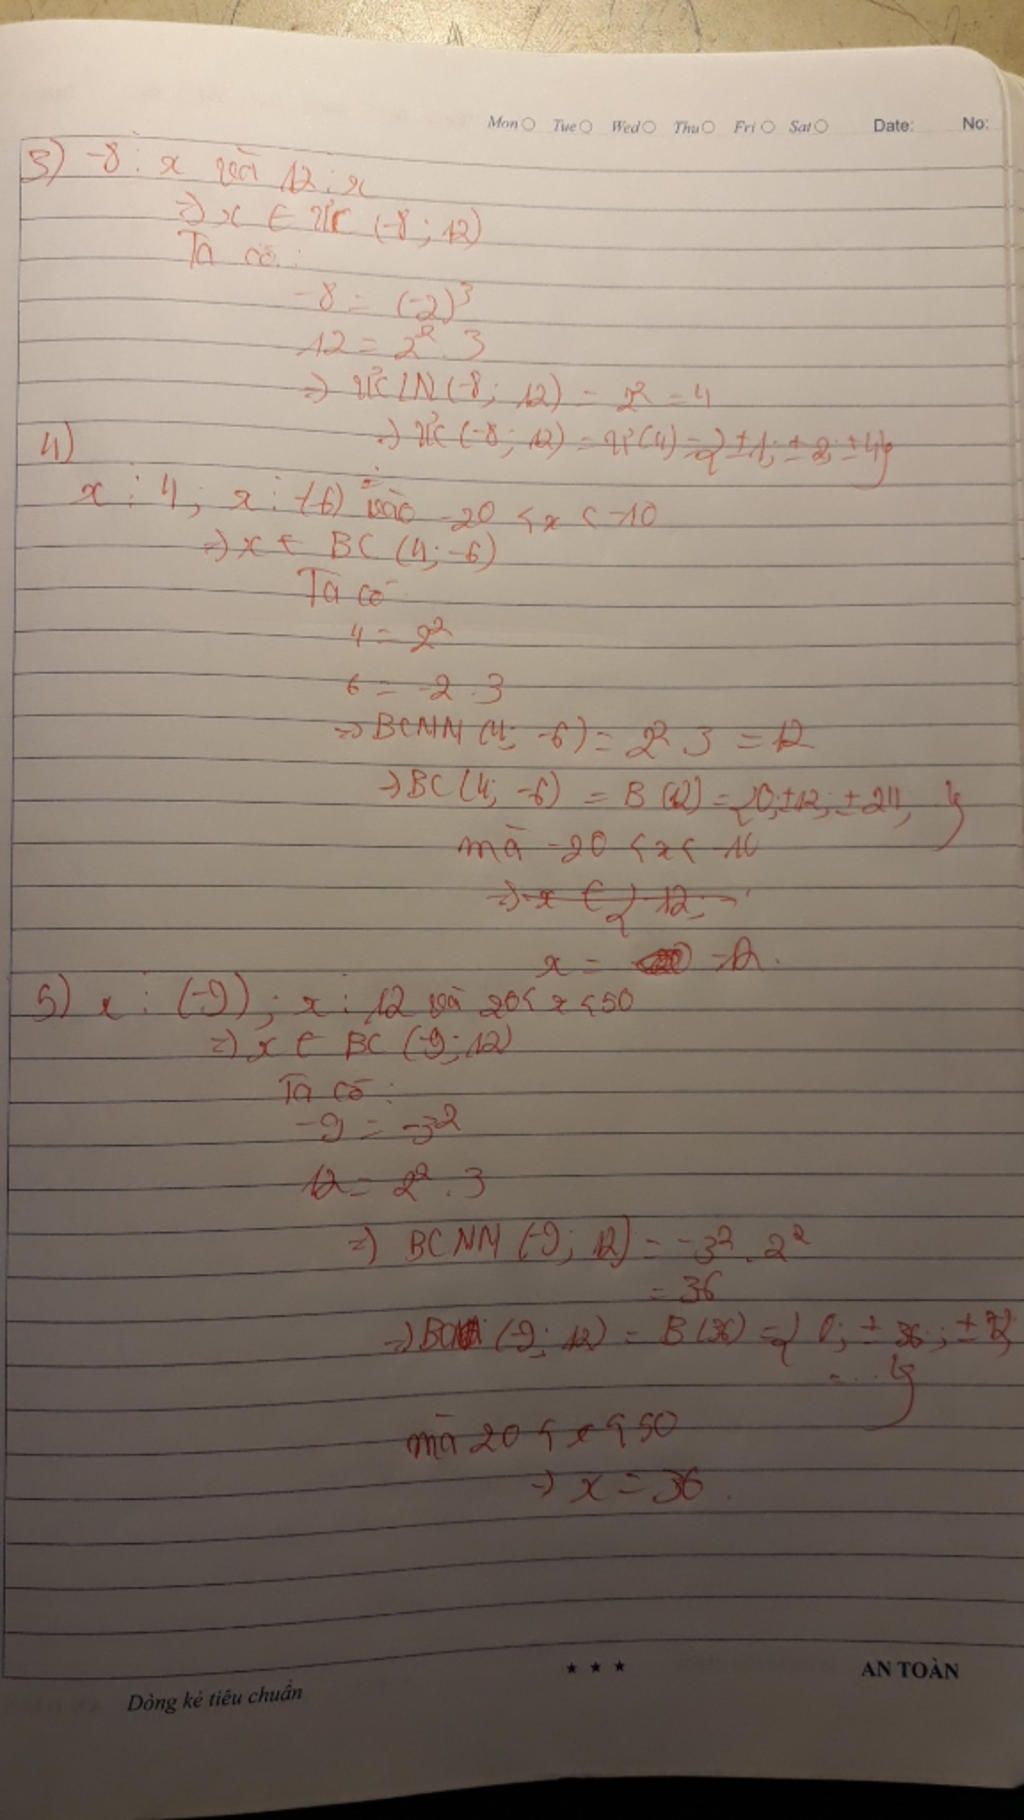 Mon Tue Wed Thu Fri Sat Date: No:
3) -8 ⋮ x và 12 ⋮ x
=> x ∈ ƯC (-8 ; 12)
Ta có :
-8 = (-2)³
12 = 2² . 3
=> ƯCLN (-8 ; 12) = 2² = 4
=> ƯC (-8 ; 12) = Ư(4) = { ±1; ±2; ±4}
4)
x ⋮ 4 ; x ⋮ (-6) và -20 < x < -10
=> x ∈ BC (4; -6)
Ta có
4 = 2²
6 = -2 . 3
=> BCNN (4; -6) = 2² 3 = 12
=> BC (4; -6) = B (12) = {0; ±12; ±24; }
mà -20 < x < -10
=> x ∈ { 12;
x = -12.
5) x ⋮ (-9) ; x ⋮ 12 và 20 < x < 50
=> x ∈ BC (-9 ; 12)
Ta có :
-9 = -3²
12 = 2² . 3
=> BCNN (-9 ; 12) = -3² . 2²
= 36
=> BC (-9 ; 12) = B (36) = { 0; ±36 ; ±72;
...}
mà 20 < x < 50
=> x = 36 .
★ ★ ★
AN TOÀN
Dòng kẻ tiêu chuẩn